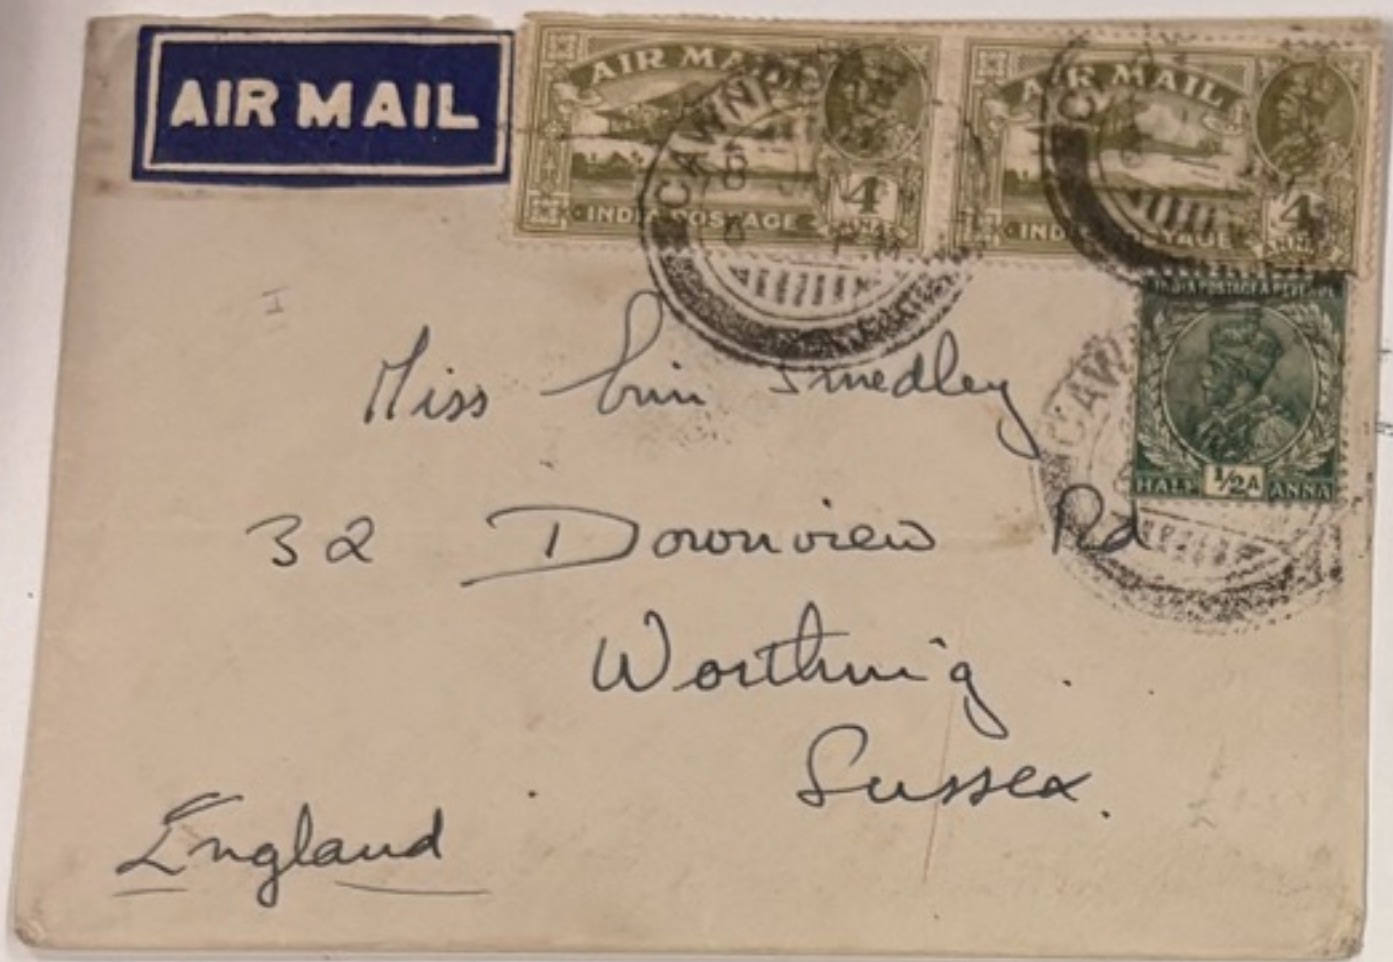 AIR MAIL
AIR MAIL
4
INDIA POSTAGE ANNAS
AIR MAIL
4
INDIA POSTAGE ANNAS
CAWNPO
INDIA POSTAGE & REVENUE
1/2A
HALF ANNA
CAW
Miss Smedley
32 Downview Rd
Worthing
Sussex.
England